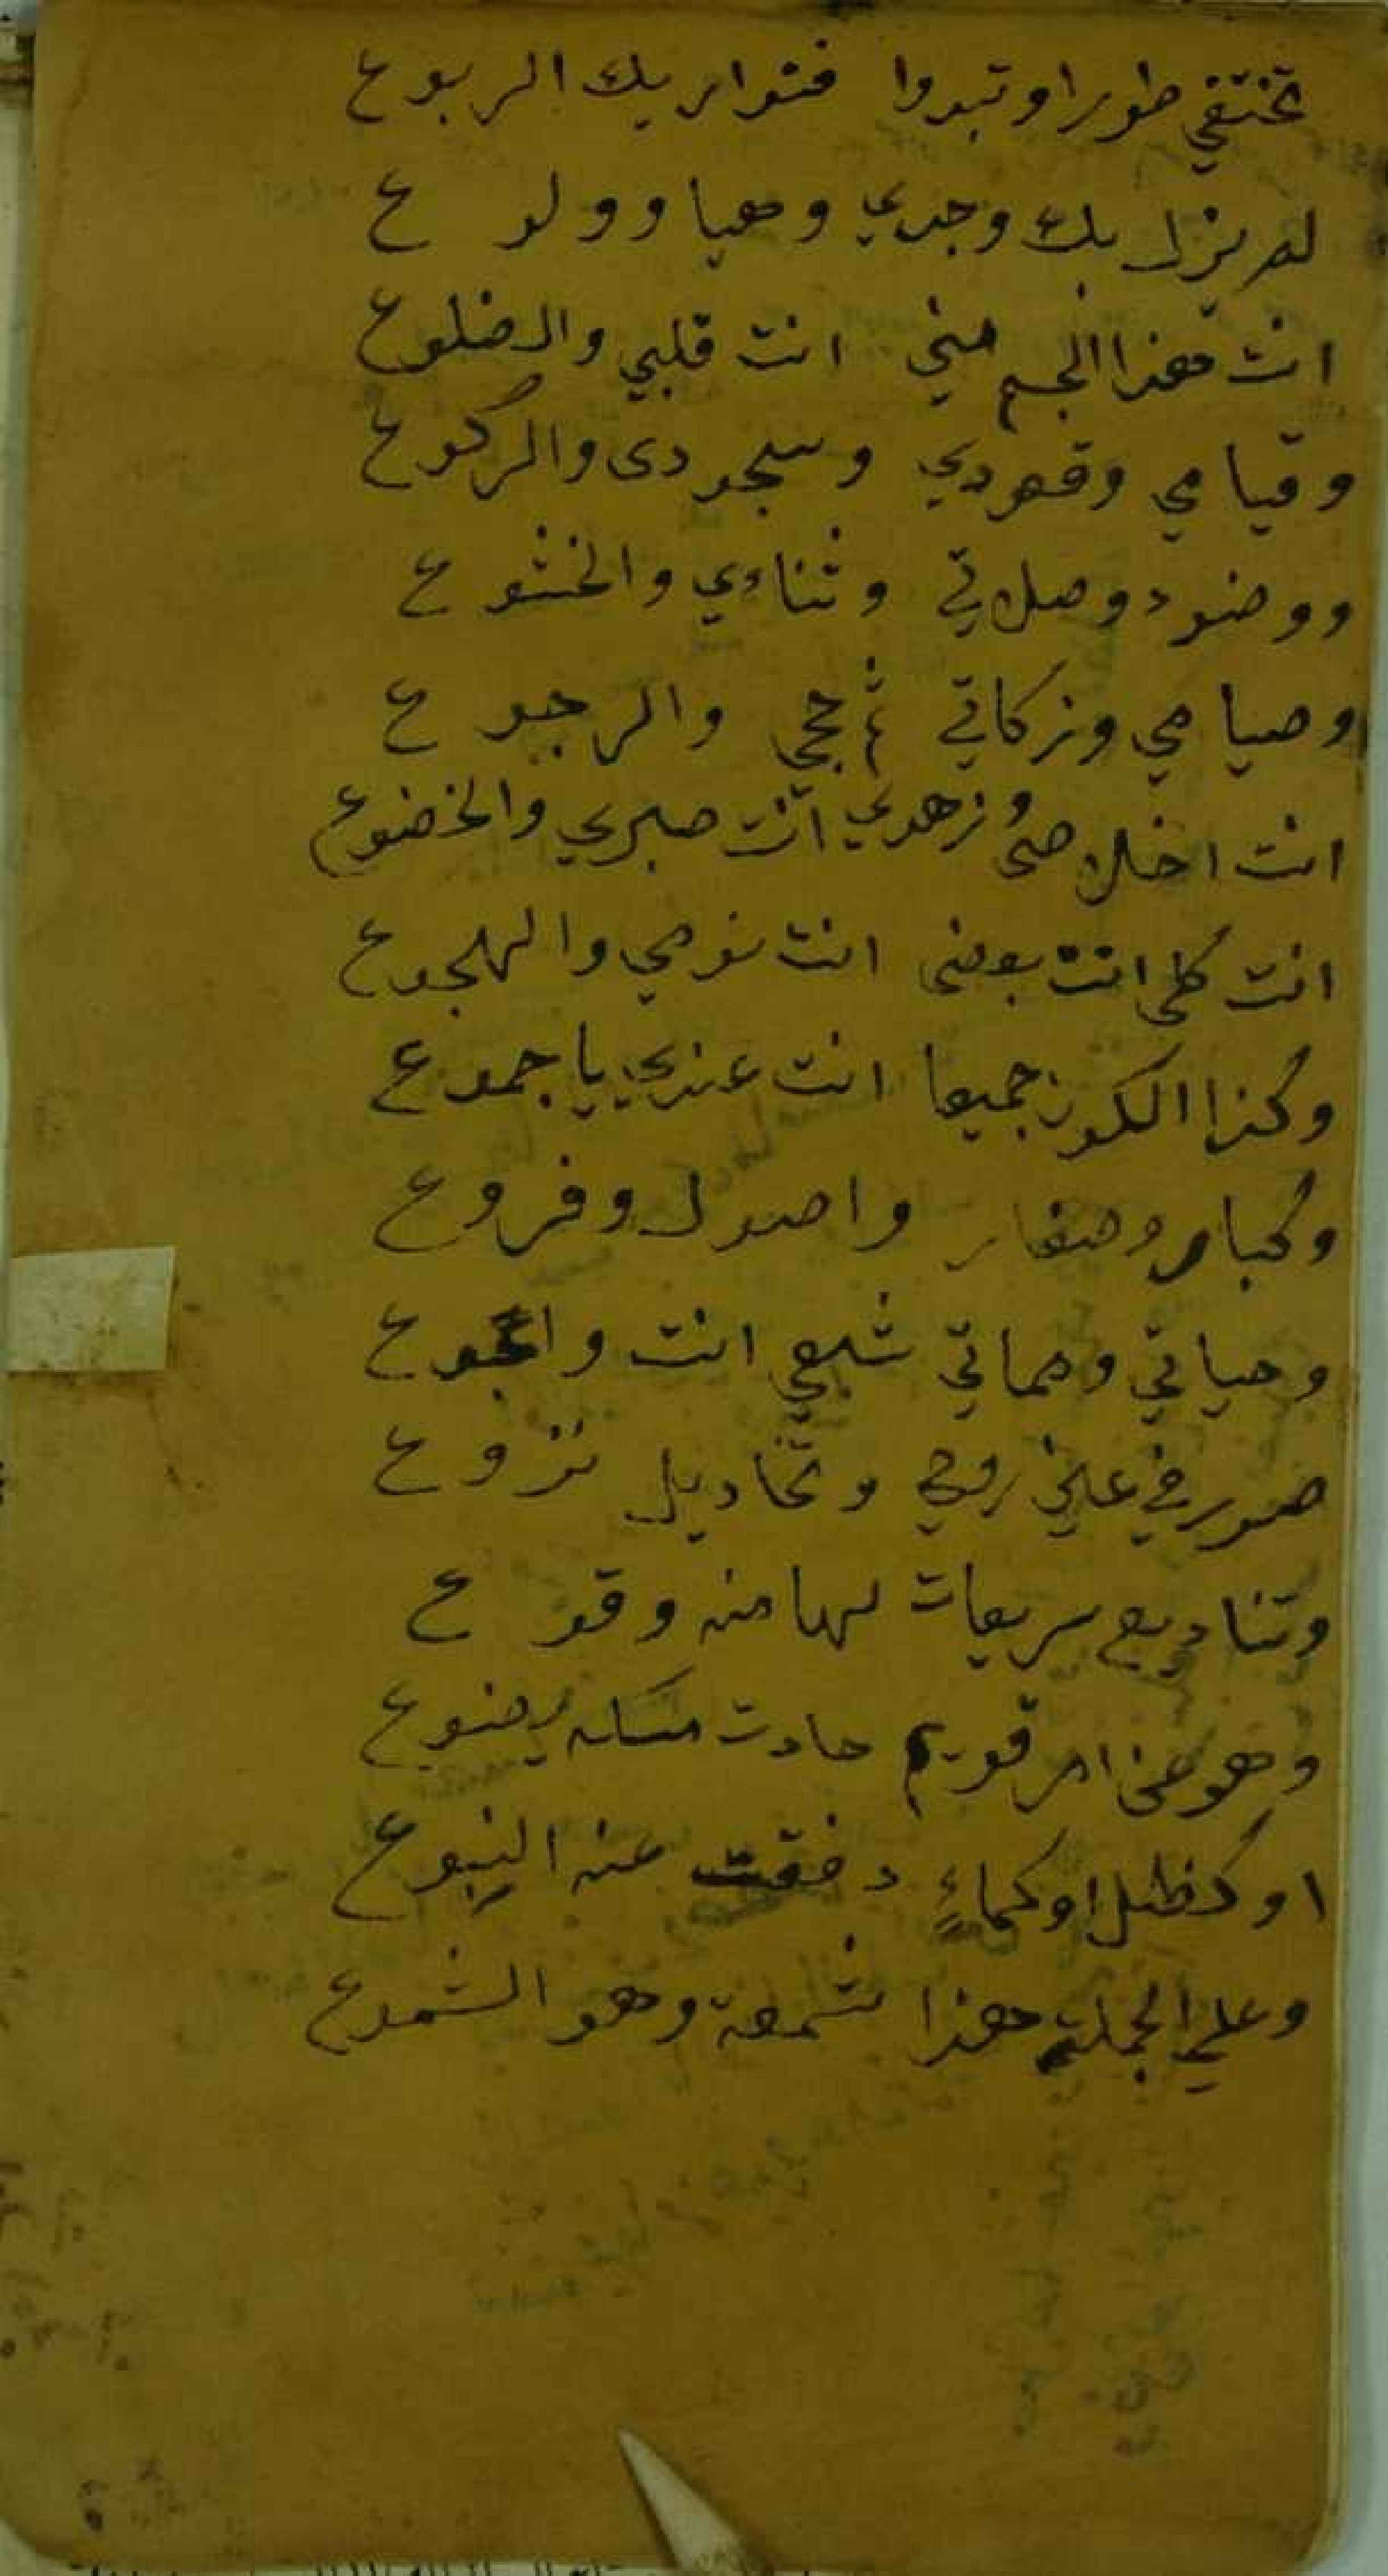 تختفي طورا وتبدوا فتواريك الربوع
لم يزل بك وجدي وهيا وولوع
انت هذا الجسم مني انت قلبي والضلوع
وقيامي وقعودي وسجودى والركوع
ووضوء وصلاتي وثناءي والخشوع
وصيامي وزكاتي ثم حجي والرجوع
انت اخلاصى وزهدي انت صبري والخضوع
انت كلى انت بعضى انت نومي والهجوع
وكذا الكون جميعا انت عندي يا جموع
وكبار وصغار واصول وفروع
وحياتي ومماتي شبعي انت والجوع
صور في علي روحي وتخاديل نزوع
وتناديع سريعات لها منه وقوع
وهو عن امر قويم حادت مسكه يضوع
او كظل او كماءٍ دفقت عنه الينبوع
وعلي الجملة هذا شمعة وهو الشموع